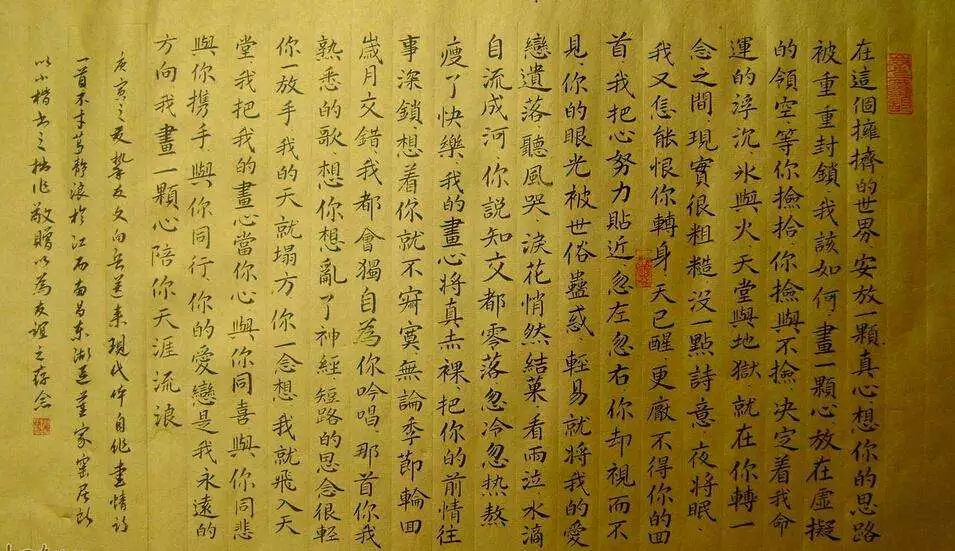 在這個擁擠的世界安放一顆真心想你的思路
被重重封鎖我該如何畫一顆心放在虛擬
的領空等你撿拾你撿與不撿決定着我命
運的浮沉氷與火天堂與地獄就在你轉一
念之間現實很粗糙没一點詩意夜將眠
我又怎能恨你轉身天已醒更厭不得你的回
首我把心努力貼近忽左忽右你却視而不
見你的眼光被世俗蠱惑輕易就將我的愛
戀遺落聽風哭淚花悄然結菓看雨泣水滴
自流成河你説知交都零落忽冷忽热熬
瘦了快樂我的畫心將真赤裸把你的前情往
事深鎖想着你就不寂寞無論季節輪回
歲月交錯我都會獨自為你吟唱那首你我
熟悉的歌想你想亂了神經短路的思念很輕
你一放手我的天就塌方你一念想我就飛入天
堂我把我的畫心當你心與你同喜與你同悲
與你携手與你同行你的愛戀是我永遠的
方向我畫一顆心陪你天涯流浪
庚寅之夏摯友文向兵來現代体自作畫情詩
一首不才於江西南昌東湖區董家窑居所
以小楷書之拙作敬贈以為友誼之存念